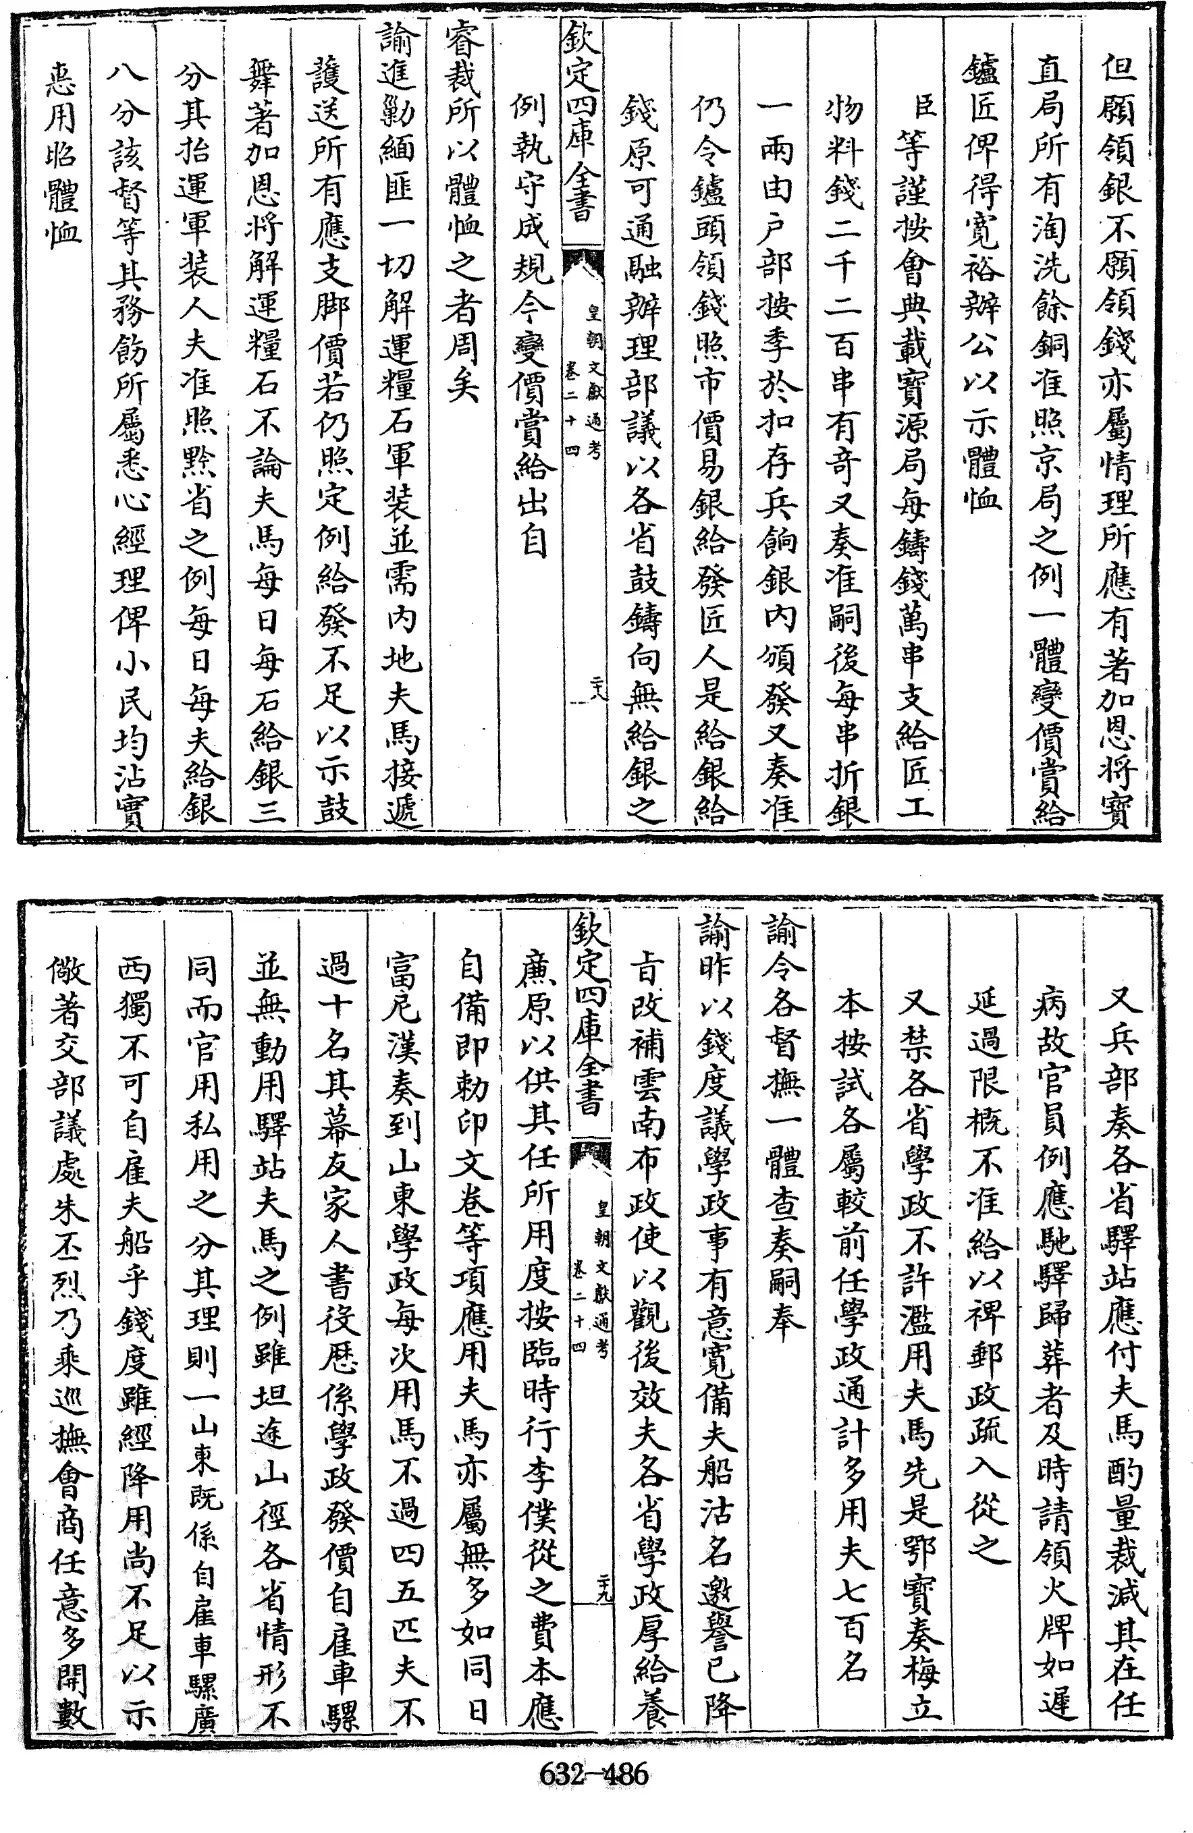 但願領銀不願領錢亦屬情理所應有著加恩將寶
直局所有淘洗餘銅准照京局之例一體變價賞給
鑪匠俾得寛裕辦公以示體恤
臣等謹按會典載寶源局每鑄錢萬串支給匠工
物料錢二千二百串有奇又奏准嗣後每串折銀
一兩由户部按季於扣存兵餉銀内頒發又奏准
仍令鑪頭領錢照市價易銀給發匠人是給銀給
錢原可通融辦理部議以各省鼓鑄向無給銀之
欽定四庫全書
皇朝文獻通考
卷二十四
二十八
例執守成規今變價賞給出自
睿裁所以體恤之者周矣
諭進勦緬匪一切解運糧石軍裝並需内地夫馬接遞
護送所有應支脚價若仍照定例給發不足以示鼓
舞著加恩將解運糧石不論夫馬每日每石給銀三
分其抬運軍裝人夫准照黔省之例每日每夫給銀
八分該督等其務飭所屬悉心經理俾小民均沾實
惠用昭體恤
又兵部奏各省驛站應付夫馬酌量裁減其在任
病故官員例應馳驛歸葬者及時請領火牌如遲
延過限概不准給以裨郵政疏入從之
又禁各省學政不許濫用夫馬先是鄂寶奏梅立
本按試各屬較前任學政通計多用夫七百名
諭令各督撫一體查奏嗣奉
諭昨以錢度議學政事有意寛備夫船沽名邀譽已降
旨改補雲南布政使以觀後效夫各省學政厚給養
欽定四庫全書
皇朝文獻通考
卷二十四
二十九
廉原以供其任所用度按臨時行李僕從之費本應
自備即勅印文卷等項應用夫馬亦屬無多如同日
富尼漢奏到山東學政每次用馬不過四五匹夫不
過十名其幕友家人書役歴係學政發價自雇車騾
並無動用驛站夫馬之例雖坦途山徑各省情形不
同而官用私用之分其理則一山東既係自雇車騾廣
西獨不可自雇夫船乎錢度雖經降用尚不足以示
儆著交部議處朱丕烈乃乘巡撫會商任意多開數
632-486